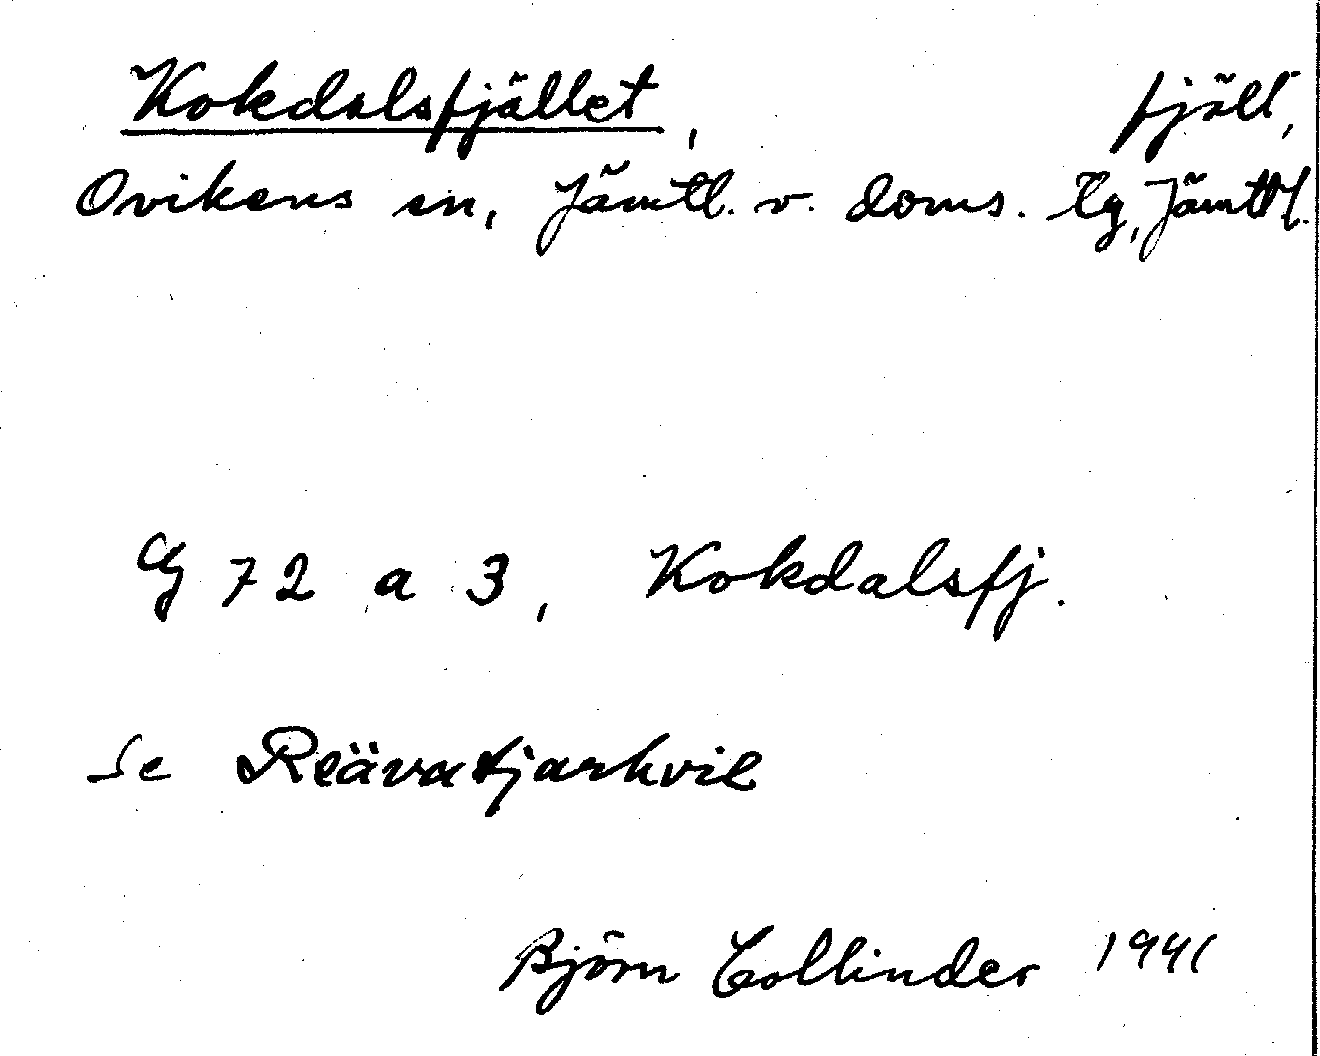 Kokdalsfjället, fjäll,
Ovikens sn, Jämtl. v. doms. tg, Jämtl.
G 72 a 3, Kokdalsfj.
Se
Björn Collinder 1941